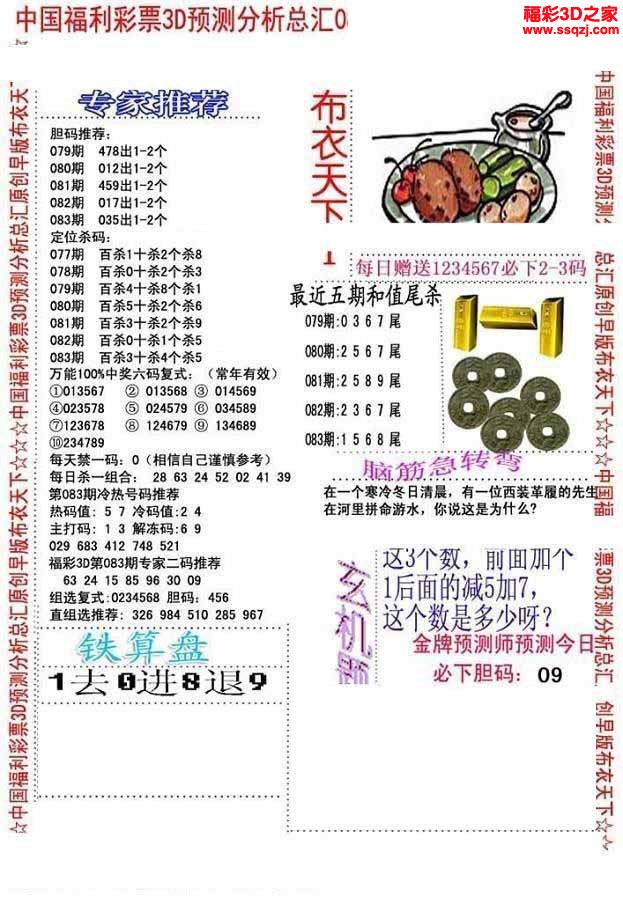 中国福利彩票3D预测分析总汇0
福彩3D之家
www.ssqzj.com
专家推荐
胆码推荐:
079期 478出1-2个
080期 012出1-2个
081期 459出1-2个
082期 017出1-2个
083期 035出1-2个
定位杀码:
077期 百杀1十杀2个杀8
078期 百杀0十杀2个杀3
079期 百杀4十杀8个杀1
080期 百杀5十杀2个杀6
081期 百杀3十杀2个杀9
082期 百杀0十杀1个杀5
083期 百杀3十杀4个杀5
万能100%中奖六码复式:(常年有效)
①013567 ② 013568 ③ 014569
④023578 ⑤ 024579 ⑥ 034589
⑦123678 ⑧ 124679 ⑨ 134689
⑩234789
每天禁一码: 0（相信自己谨慎参考）
每日杀一组合: 28 63 24 52 02 41 39
第083期冷热号码推荐
热码值: 5 7 冷码值: 2 4
主打码: 1 3 解冻码: 6 9
029 683 412 748 521
福彩3D第083期专家二码推荐
63 24 15 85 96 30 09
组选复式:0234568 胆码: 456
直组选推荐: 326 984 510 285 967
铁算盘
1去0进8退9
布衣天下
每日赠送1234567必下2-3码
最近五期和值尾杀
079期:0 3 6 7 尾
080期:2 5 6 7 尾
081期:2 5 8 9 尾
082期:2 3 6 7 尾
083期:1 5 6 8 尾
脑筋急转弯
在一个寒冷冬日清晨，有一位西装革履的先生
在河里拼命游水，你说这是为什么?
玄机
这3个数，前面加个
1后面的减5加7，
这个数是多少呀?
金牌预测师预测今日
必下胆码: 09
☆中国福利彩票3D预测分析总汇原创早版布衣天下☆☆☆中国福利彩票3D预测分析总汇原创早版布衣天
中国福利彩票3D预测
总汇原创早版布衣天下☆☆☆中国福
票3D预测分析总汇
创早版布衣天下☆☆